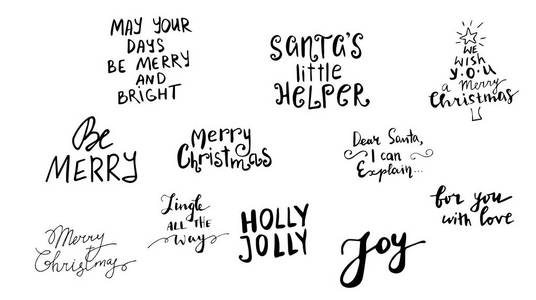 MAY YOUR
DAYS
BE MERRY
AND
BRIGHT
SANTA'S
little
HELPER
WE
WISH
Y·O·U
a Merry
Christmas
Be
MERRY
Merry
Christmas
Dear Santa,
I can
Explain...
for you
with love
Merry
Christmas
Jingle
ALL THE
way
HOLLY
JOLLY
Joy